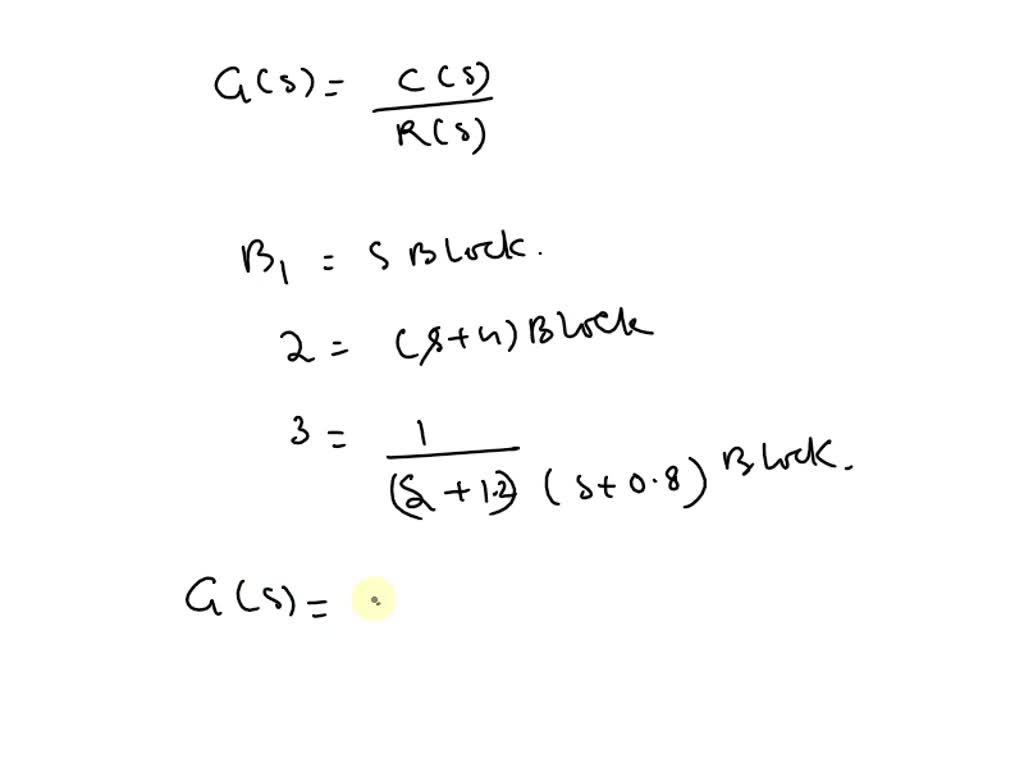 G(s) = C(s) / R(s)
B1 = S Block.
2 = (s+4) Block
3 = 1 / (S + 1.2) (s + 0.8) Block.
G(s) =